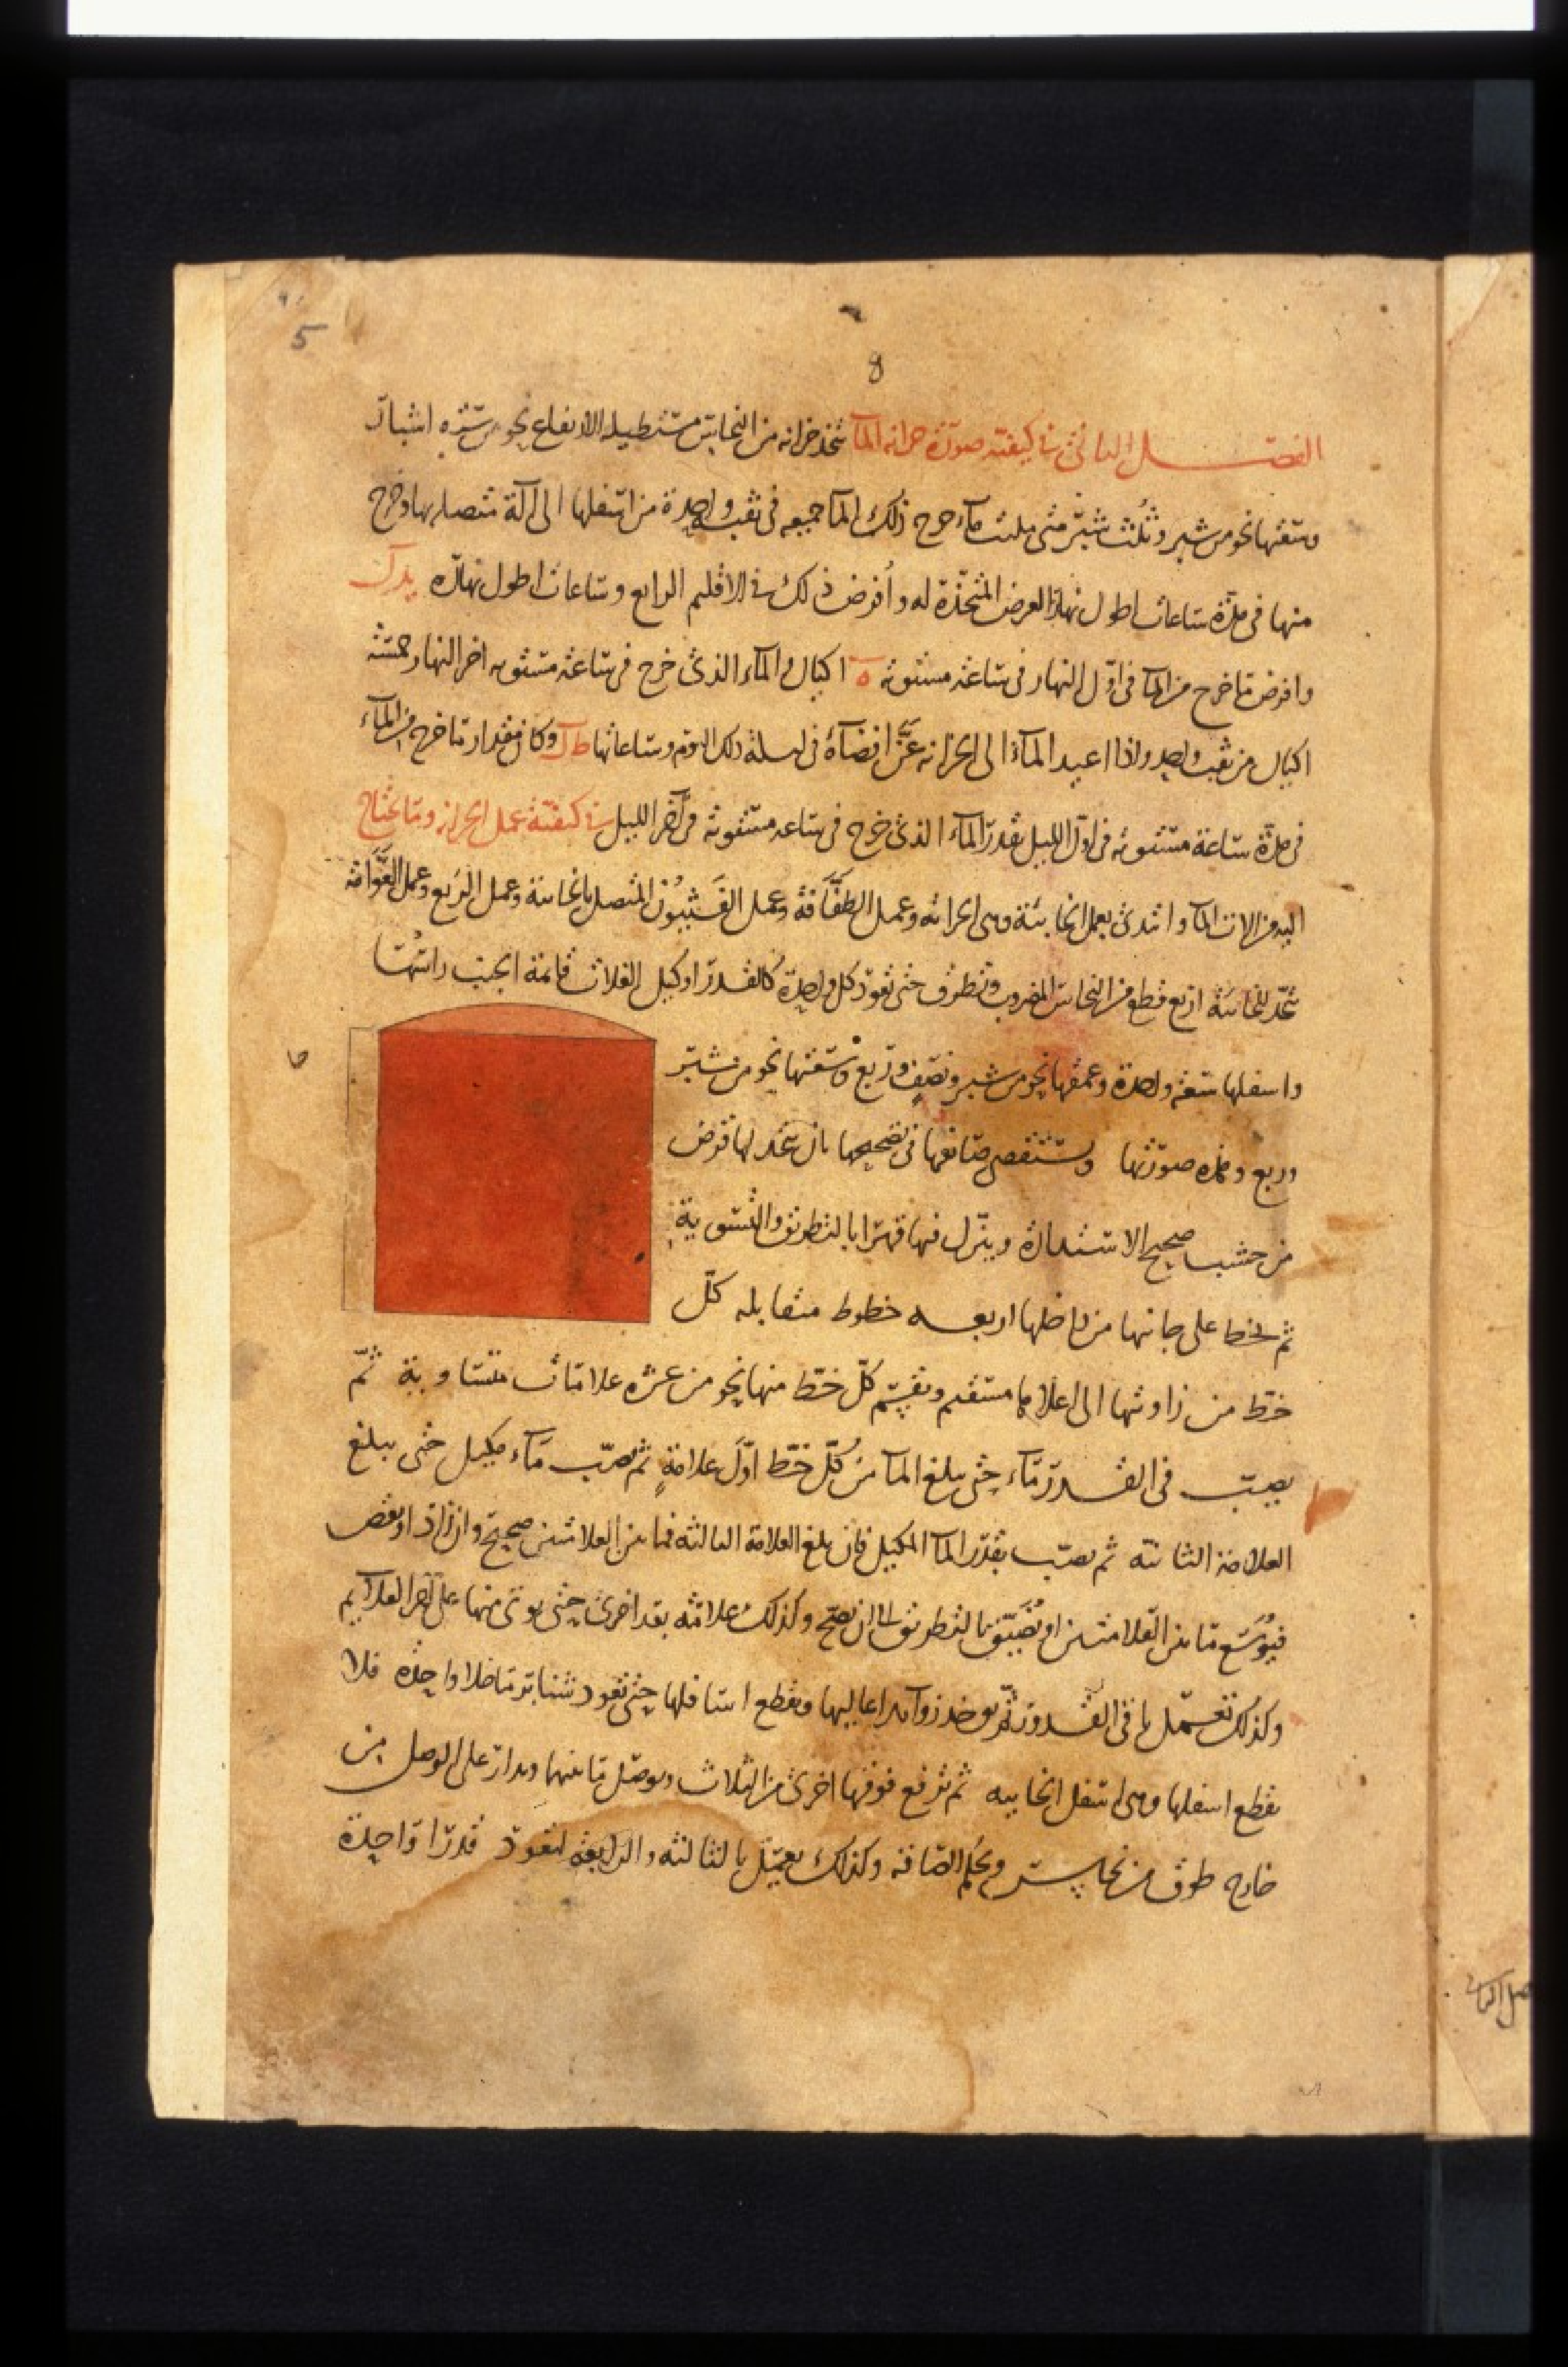 5
8
الفصل الثاني في كيفية صورة خزانة الما تتخذ خزانه من النحاس مستطيلة الارتفاع نحو من ستة اشبار
وسعتها نحو من شبر وثلث شبر متى ملئت مآء خرج ذلك الما جميعه في ثقب واحدة من اسفلها الى آلة متصله بها وخرج
منها في مدة ساعات اطول نهار العرض المتخذة له وأفرض ذلك في الاقليم الرابع وساعات اطول نهاره يدل
وافرض ما خرج من الما في اول النهار في ساعة مستوية ه اكيال والماء الذي خرج في ساعة مستويه اخر النهار خمسة
اكيال من ثقب واحد ولذا اعيد الماء الى الخزانه عند انقضآئه في ليلة ذلك اليوم وساعاتها ط وكان مقدار ما خرج من المآء
في مدة ساعة مستوية في اول الليل بقدر المآء الذي خرج في ساعه مستوية في آخر الليل في كيفية عمل الخزانه وما تحتاج
اليه من الات الما وابتدى بعمل الخابية وهي الخزانه وعمل الطفافة وعمل القثيون المتصل بالخابية وعمل الربع وعمل العوامة
تتخذ للخابية اربع قطع من النحاس المضروب وتطرق حتى تعود كل واحدة كالقدر او كيل الغلات قائمة الجنب راسها
واسفلها سعة واحدة وعمقها نحو من شبر ونصف وربع وسعتها نحو من شبر
وربع وهذه صورتها ويستقصي صانعها في تصحيحها بان يتخذ لها قرص
من خشب صحيح الاستدارة وينزل فيها قهرا بالتطريق والتسوية
ثم يخط على جانبها من داخلها اربعه خطوط متقابله كل
خط من زاويتها الى اعلاها مستقيم ويقسم كل خط منها نحو من عشره علامات متساوية ثم
يصب في القدر مآء حتى يبلغ المآ من كل خط اول علامة ثم يصب مآء مكيل حتى يبلغ
العلامة الثانيه ثم يصب بقدر المآ المكيل فان بلغ العلامة الثالثه فما بين العلامتين صحيح وان زاد او نقص
فيوسع ما بين العلامتين او يضيق بالتطريق الى ان يصح وكذلك علامة بعد اخرى حتى يوتى منها على آخر العلايم
وكذلك تعمل باقى القدور ثم يوخذ زوآيد اعاليها وتقطع اسافلها حتى تعود شنابر ما خلا واحدة فلا
يقطع اسفلها وهي اسفل الخابيه ثم ترفع فوقها اخرى من الثلاث ويوصل ما بينهما ويدار على الوصل من
خارج طوق من نحاس ويحكم الصاقه وكذلك يعمل بالثالثه والرابعة لتعود قدرا واحدة